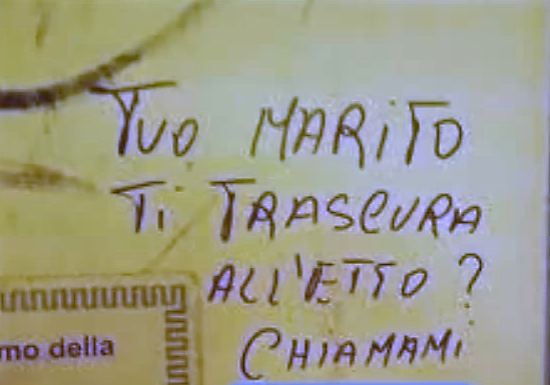 TUO MARITO
Ti TRASCURA
ALL'ETTO ?
CHIAMAMI
mo della